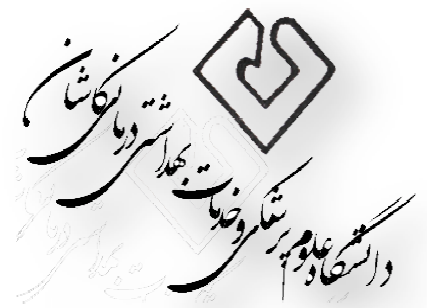 دانشگاه علوم پزشکی و خدمات بهداشتی درمانی کاشان